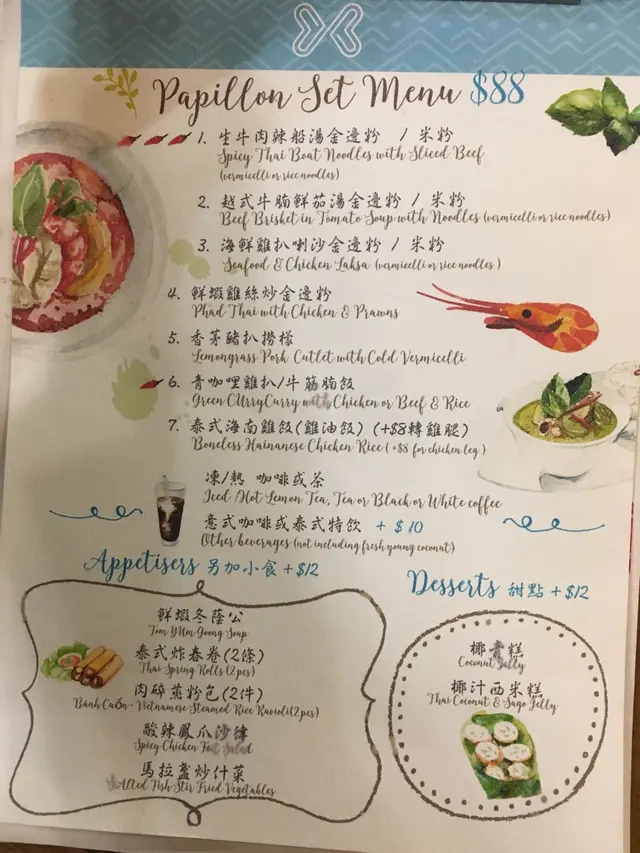 Papillon Set Menu $88
1. 生牛肉辣船湯金邊粉 / 米粉
Spicy Thai Boat Noodles with Sliced Beef
(vermicelli or rice noodles)
2. 越式牛腩鮮茄湯金邊粉 / 米粉
Beef Brisket in Tomato Soup with Noodles (vermicelli or rice noodles)
3. 海鮮雞扒喇沙金邊粉 / 米粉
Seafood & Chicken Laksa (vermicelli or rice noodles)
4. 鮮蝦雞絲炒金邊粉
Phad Thai with Chicken & Prawns
5. 香茅豬扒撈檬
Lemongrass Pork Cutlet with Cold Vermicelli
6. 青咖哩雞扒/牛筋腩飯
Green CUrryCurry with Chicken or Beef & Rice
7. 泰式海南雞飯(雞油飯) (+$8轉雞腿)
Boneless Hainanese Chicken Rice (+$8 for chicken leg)
凍/熱 咖啡或茶
Iced /Hot Lemon Tea, Tea or Black or White coffee
意式咖啡或泰式特飲 + $10
Other beverages (not including fresh young coconut)
Appetisers 另加小食 +$12
鮮蝦冬蔭公
Tom YUm Goong Soup
泰式炸春卷(2條)
Thai Spring Rolls (2pcs)
肉碎蒸粉包(2件)
Bánh Cuốn - Vietnamese Steamed Rice Ravioli(2pcs)
酸辣鳳爪沙律
Spicy Chicken Feet Salad
馬拉盞炒什菜
SAlted Fish Stir Fried Vegetables
Desserts 甜點 +$12
椰青糕
Coconut Jelly
椰汁西米糕
Thai Coconut & Sago Jelly